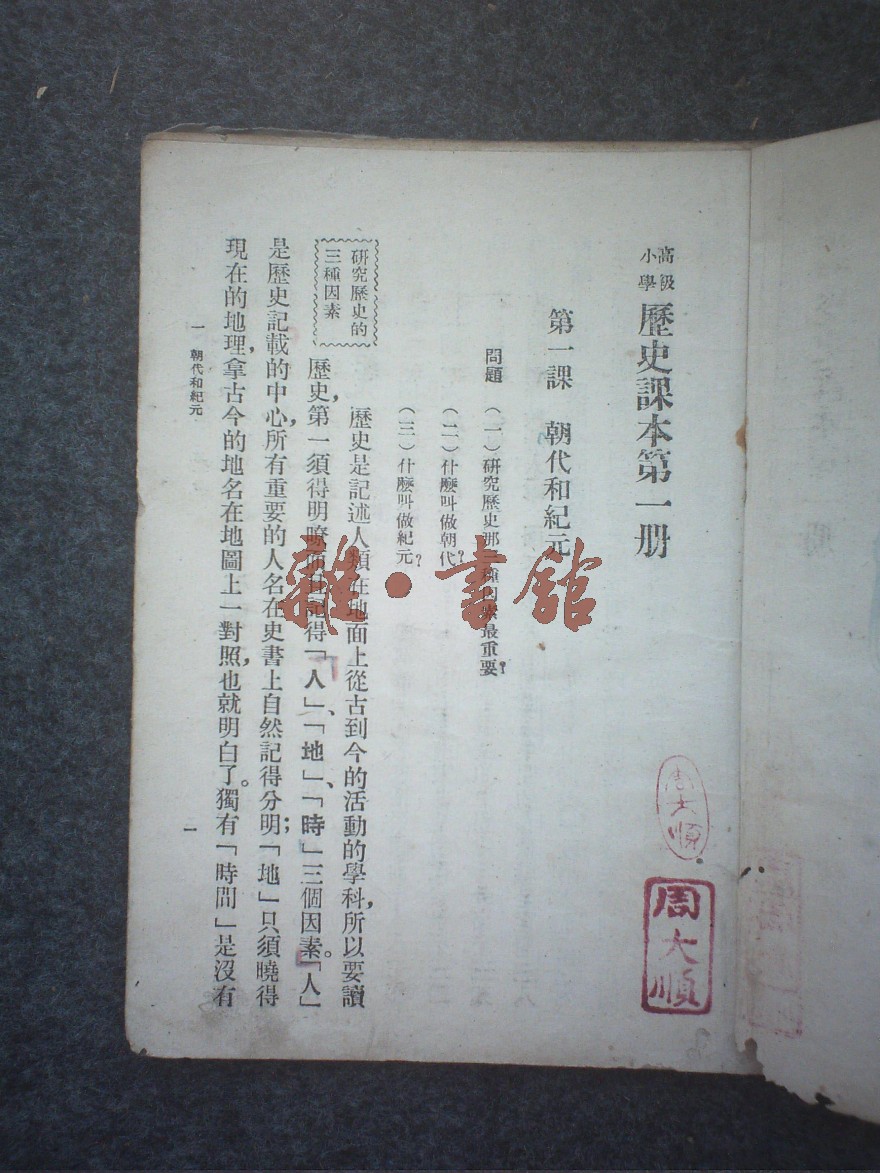 高級
小學
歷史課本第一册
第一課　朝代和紀元
問題　（一）研究歷史那三種因素最重要？
（二）什麽叫做朝代？
（三）什麽叫做紀元？
研究歷史的
三種因素
歷史是記述人類在地面上從古到今的活動的學科，所以要讀
歷史，第一須得明瞭而且記得「人」、「地」、「時」三個因素。「人」
是歷史記載的中心，所有重要的人名在史書上自然記得分明；「地」只須曉得
現在的地理，拿古今的地名在地圖上一對照，也就明白了。獨有「時間」是沒有
一　朝代和紀元
一
周大順
周大順
雜·書館